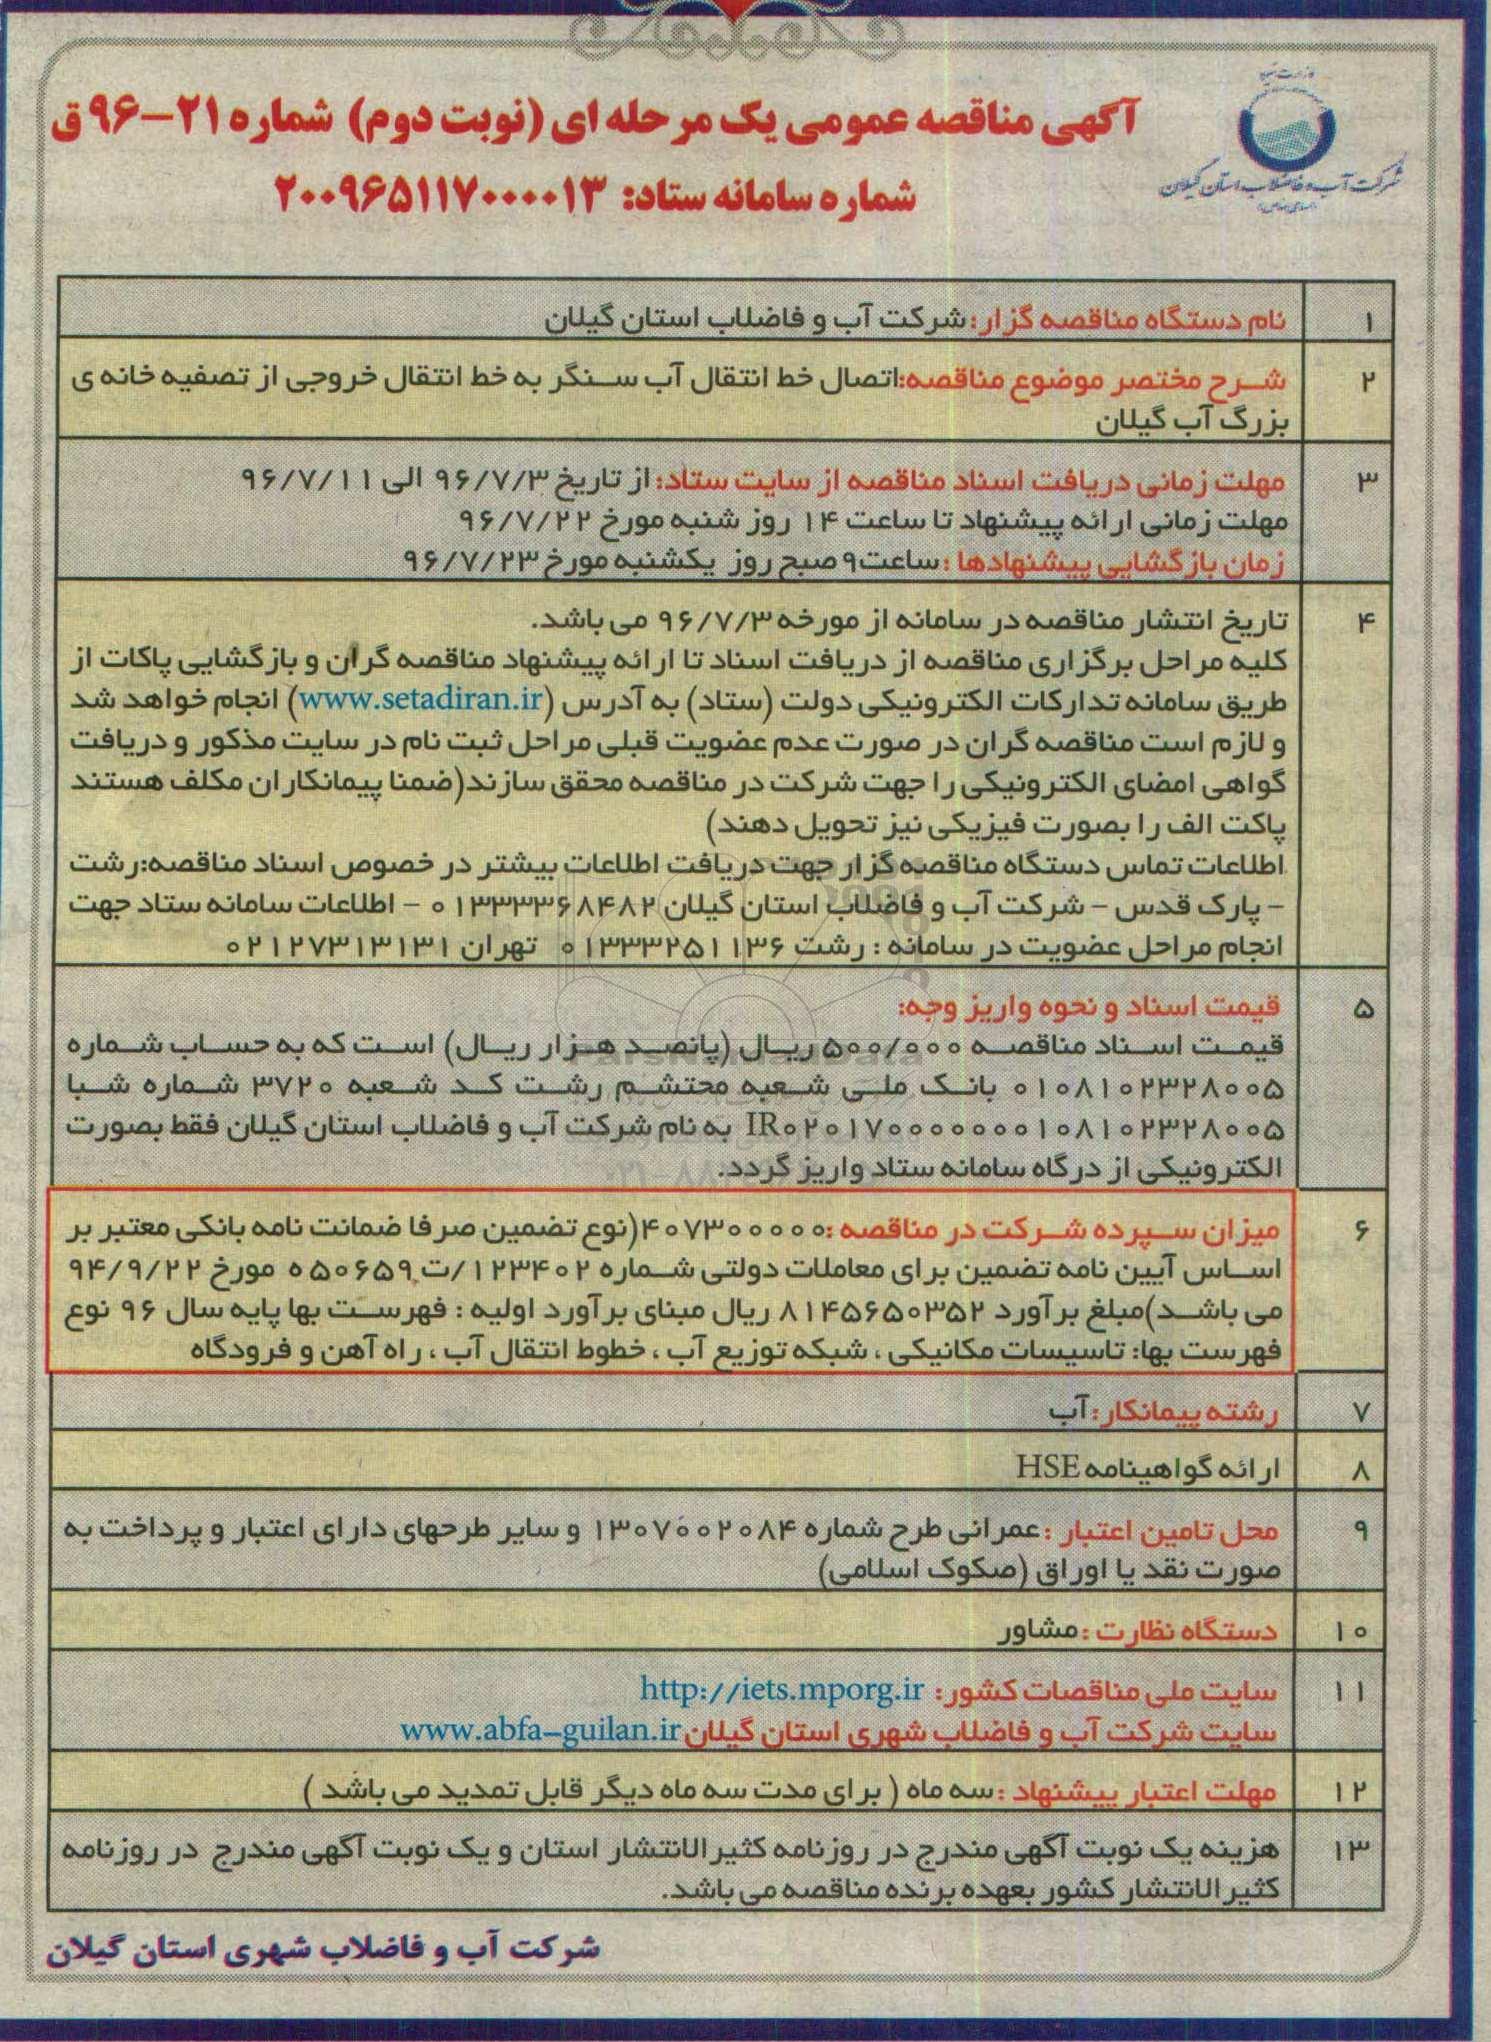 شرکت آب و فاضلاب استان گیلان
آگهی مناقصه عمومی یک مرحله ای (نوبت دوم) شماره ۲۱–۹۶ ق
شماره سامانه ستاد: ۲۰۰۹۶۵۱۱۷۰۰۰۰۱۳
۱ نام دستگاه مناقصه گزار: شرکت آب و فاضلاب استان گیلان
۲ شرح مختصر موضوع مناقصه: اتصال خط انتقال آب سنگر به خط انتقال خروجی از تصفیه خانه ی
بزرگ آب گیلان
۳ مهلت زمانی دریافت اسناد مناقصه از سایت ستاد: از تاریخ ۹۶/۷/۳ الی ۹۶/۷/۱۱
مهلت زمانی ارائه پیشنهاد تا ساعت ۱۴ روز شنبه مورخ ۹۶/۷/۲۲
زمان بازگشایی پیشنهادها : ساعت ۹ صبح روز یکشنبه مورخ ۹۶/۷/۲۳
۴ تاریخ انتشار مناقصه در سامانه از مورخه ۹۶/۷/۳ می باشد.
کلیه مراحل برگزاری مناقصه از دریافت اسناد تا ارائه پیشنهاد مناقصه گران و بازگشایی پاکات از
طریق سامانه تدارکات الکترونیکی دولت (ستاد) به آدرس (www.setadiran.ir) انجام خواهد شد
و لازم است مناقصه گران در صورت عدم عضویت قبلی مراحل ثبت نام در سایت مذکور و دریافت
گواهی امضای الکترونیکی را جهت شرکت در مناقصه محقق سازند(ضمنا پیمانکاران مکلف هستند
پاکت الف را بصورت فیزیکی نیز تحویل دهند)
اطلاعات تماس دستگاه مناقصه گزار جهت دریافت اطلاعات بیشتر در خصوص اسناد مناقصه:رشت
– پارک قدس – شرکت آب و فاضلاب استان گیلان ۰۱۳۳۳۳۶۸۴۸۲ – اطلاعات سامانه ستاد جهت
انجام مراحل عضویت در سامانه : رشت ۰۱۳۳۳۲۵۱۱۳۶ تهران ۰۲۱۲۷۳۱۳۱۳۱
۵ قیمت اسناد و نحوه واریز وجه:
قیمت اسناد مناقصه ۵۰۰/۰۰۰ ریال (پانصد هزار ریال) است که به حساب شماره
۰۱۰۸۱۰۲۳۲۸۰۰۵ بانک ملی شعبه محتشم رشت کد شعبه ۳۷۲۰ شماره شبا
IR۰۲۰۱۷۰۰۰۰۰۰۰۰۱۰۸۱۰۲۳۲۸۰۰۵ به نام شرکت آب و فاضلاب استان گیلان فقط بصورت
الکترونیکی از درگاه سامانه ستاد واریز گردد.
۶ میزان سپرده شرکت در مناقصه :۴۰۷۳۰۰۰۰۰(نوع تضمین صرفا ضمانت نامه بانکی معتبر بر
اساس آیین نامه تضمین برای معاملات دولتی شماره ۱۲۳۴۰۲/ت۵۰۶۵۹ ه مورخ ۹۴/۹/۲۲
می باشد)مبلغ برآورد ۸۱۴۵۶۵۰۳۵۲ ریال مبنای برآورد اولیه : فهرست بها پایه سال ۹۶ نوع
فهرست بها: تاسیسات مکانیکی ، شبکه توزیع آب ، خطوط انتقال آب ، راه آهن و فرودگاه
۷ رشته پیمانکار: آب
۸ ارائه گواهینامه HSE
۹ محل تامین اعتبار : عمرانی طرح شماره ۱۳۰۷۰۰۲۰۸۴ و سایر طرحهای دارای اعتبار و پرداخت به
صورت نقد یا اوراق (صکوک اسلامی)
۱۰ دستگاه نظارت : مشاور
۱۱ سایت ملی مناقصات کشور: http://iets.mporg.ir
سایت شرکت آب و فاضلاب شهری استان گیلان www.abfa-guilan.ir
۱۲ مهلت اعتبار پیشنهاد : سه ماه ( برای مدت سه ماه دیگر قابل تمدید می باشد )
۱۳ هزینه یک نوبت آگهی مندرج در روزنامه کثیرالانتشار استان و یک نوبت آگهی مندرج در روزنامه
کثیرالانتشار کشور بعهده برنده مناقصه می باشد.
شرکت آب و فاضلاب شهری استان گیلان